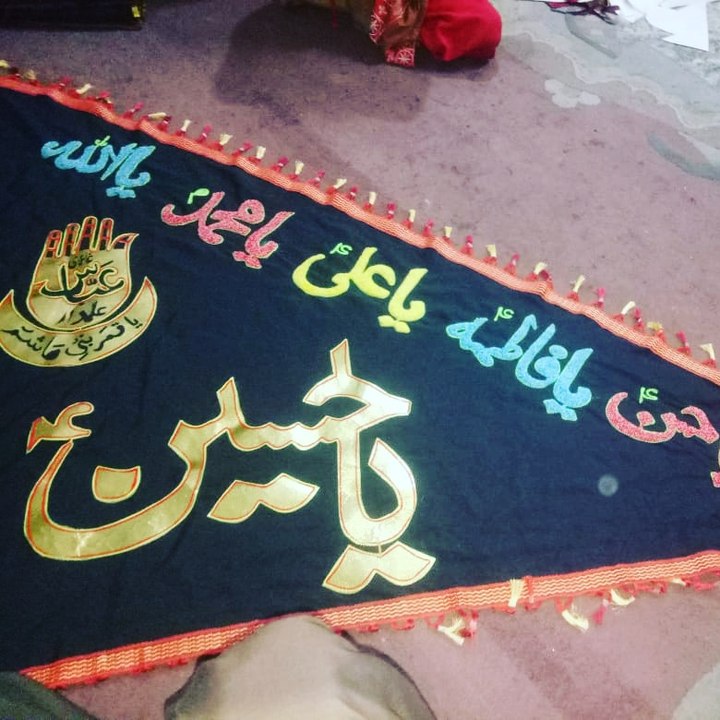 یااللہ
یا محمدؐ
یا علیؑ
یا فاطمهؑ
یا حسنؑ
غازی
عباس
علمدار
یا قمر بنی ہاشم
یا حسینؑ